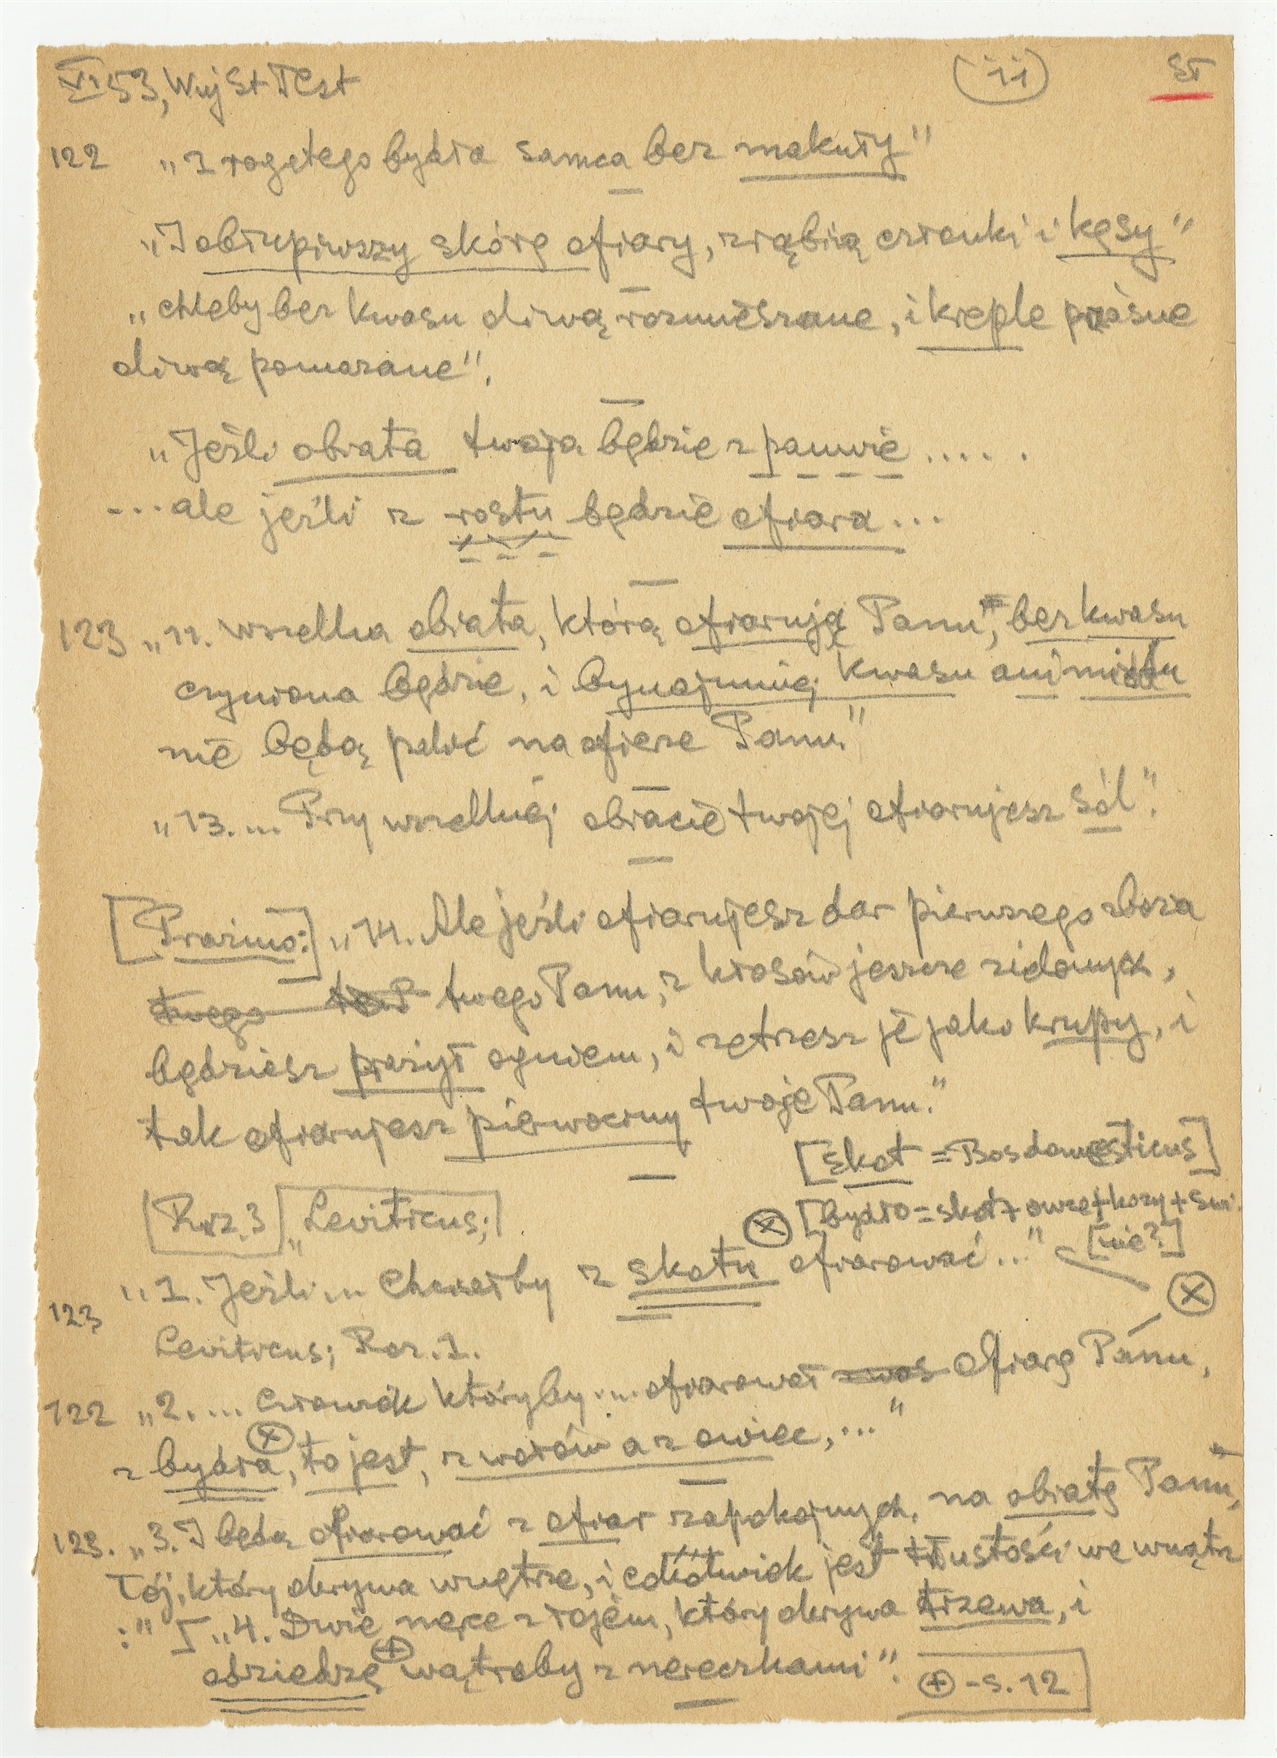 VI 53, Wuj St Test (11) ST
122 „I rogatego bydła samca bez makuły”
„I obłupiwszy skórę ofiary, zrąbią członki i kęsy”
„chleby bez kwasu oliwą rozmieszane, i kreple przaśne
oliwą pomazane”.
„Jeśli obiata twoja będzie z panwie.....
...ale jeśli z rostu będzie ofiara...
123 „11. wszelka obiata, którą ofiarują Panu, bez kwasu
czyniona będzie, i bynajmniej kwasu ani miodu
nie będą palić na ofierze Panu”
„13.... Przy wszelkiej obiacie twojej ofiarujesz sól”.
[Prażmo:] „14. Ale jeśli ofiarujesz dar pierwszego zboża
twego twego Panu, z kłosów jeszcze zielonych,
będziesz prażył ogniem, i zetrzesz je jako krupy, i
tak ofiarujesz pierwociny twoje Panu.”
[skot = Bos domesticus]
⊗ [bydło = skot + owce + kozy + świ.
[nie?]
[Roz. 3] Leviticus;
„1. Jeśli... chciałby z skotu ofiarować...”
⊗
123
Leviticus; Roz. 1.
122 „2.... człowiek któryby... ofiarował ofiarę Panu,
z bydła ⊗, to jest, z wołów a z owiec,...”
123. „3. I będą ofiarować z ofiar zapokojnych, na obiatę Panu,
łój, który okrywa wnętrze, i cokolwiek jest tłustości we wnątrz
:” I „4. Dwie nerce z łojem, który okrywa trzewa, i
odziedzę ⊕ wątroby z nereczkami”. ⊕ - s. 12